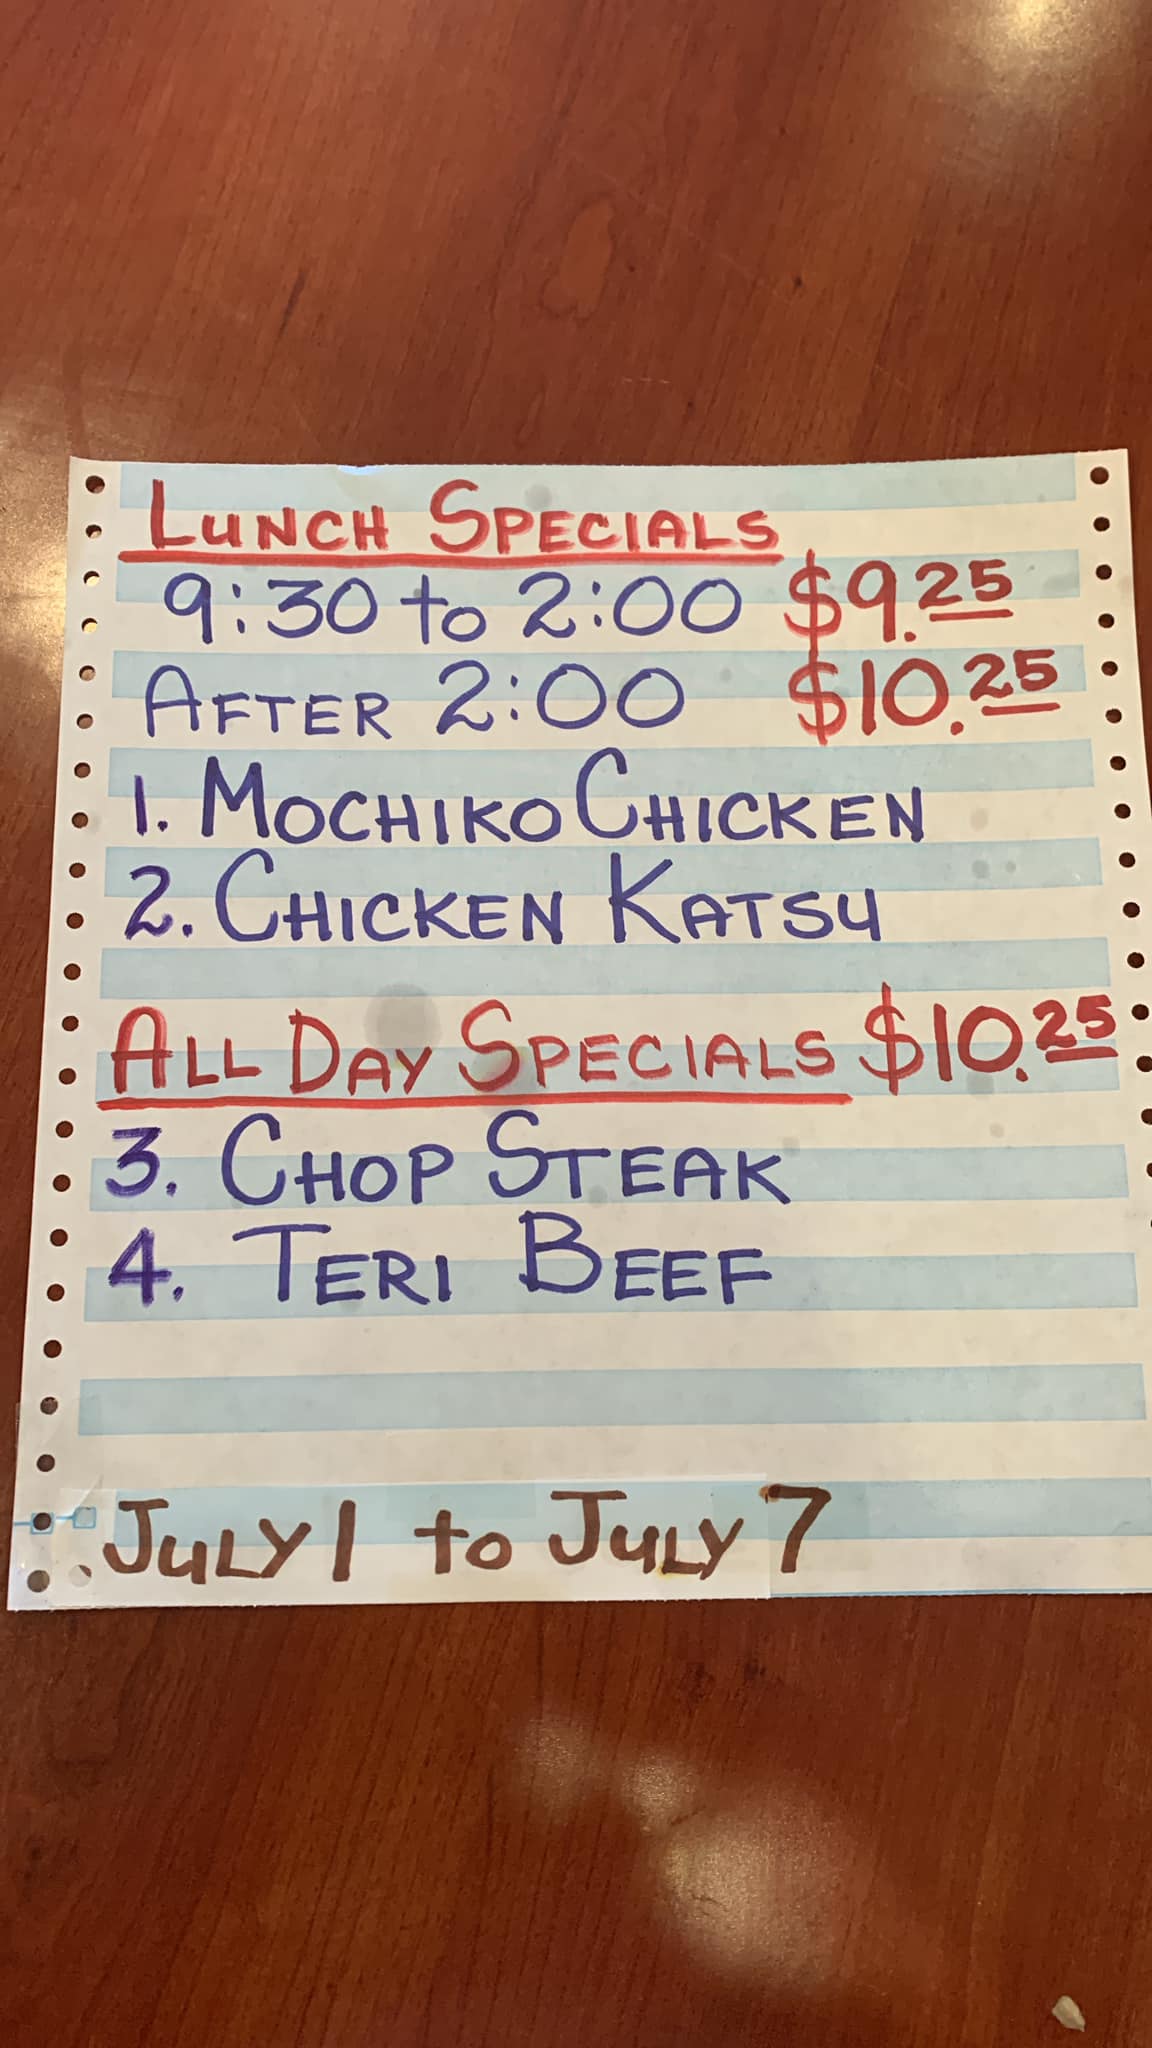 LUNCH SPECIALS
9:30 to 2:00 $9.25
AFTER 2:00 $10.25
1. MOCHIKO CHICKEN
2. CHICKEN KATSU
ALL DAY SPECIALS $10.25
3. CHOP STEAK
4. TERI BEEF
JULY 1 to JULY 7